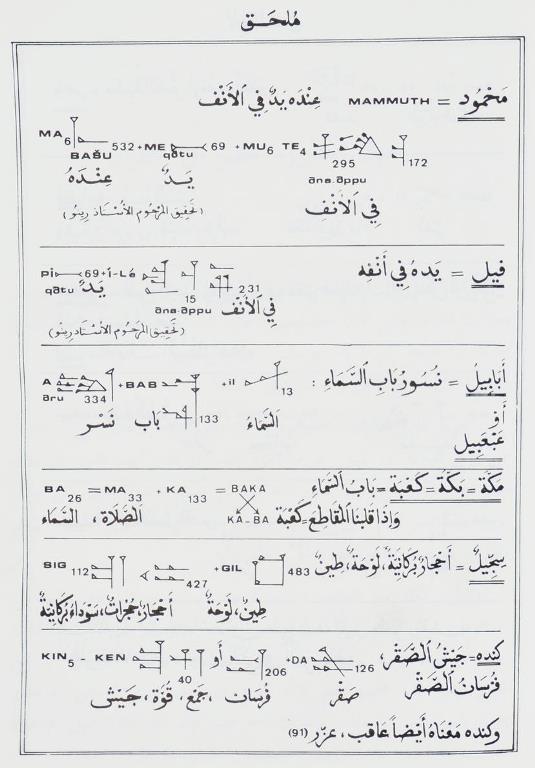 مُلحَـق
مَحْمُود = MAMMUTH عِنْدَه يَدٌ فِي الأَنْف
MA6 532 + ME 69 + MU6 TE4 295 172
BAŠU qātu ana.appu
عِنْدَهُ يَدٌ فِي الأَنْفِ
(تحقيق المرحوم الأستاذ رينو)
فيل = يَدهُ فِي أَنْفِه
Pi 69 + i-Lé 15 231
qātu يَدٌ ana.appu فِي الأَنْف
(تحقيق المرحوم الأستاذ رينو)
أَبَابِيلُ = نُسُورُ بَابِ السَّمَاءِ :
A 334 + BAB 133 + il 13
aru
نَسْر باب السَّمَاءُ
أَو
عَبْعَبِيل
مَكَّة = بَكَّة = كَعْبَة = بَابُ السَّمَاءِ
BA26 = MA33 + KA133 = BAKA
KA-BA
وَإِذَا قلبنا المقَاطِع = كَعْبَة الصَّلَاة، السَّمَاء
سِجِّيلٌ = أَحْجَارٌ بُركَانِيَّةٌ، لَوْحَةٌ، طِينٌ
SIG 112 427 + GIL 483
طِينٌ، لَوْحَةٌ أَحْجَارٌ، حُجْرَاتٌ، سَوْدَاءُ بُرْكَانِيَّةٌ
كنده = جَيْشُ الصَّقْر،
فُرْسَانُ الصَّقْر
KIN5 - KEN 40 أَو 206 + DA 126
صَقْر فُرسَان، جَمْع، قُوَّة، جَيْش
وكنده مَعْنَاهُ أَيْضاً عَاقب، عزّر (91)